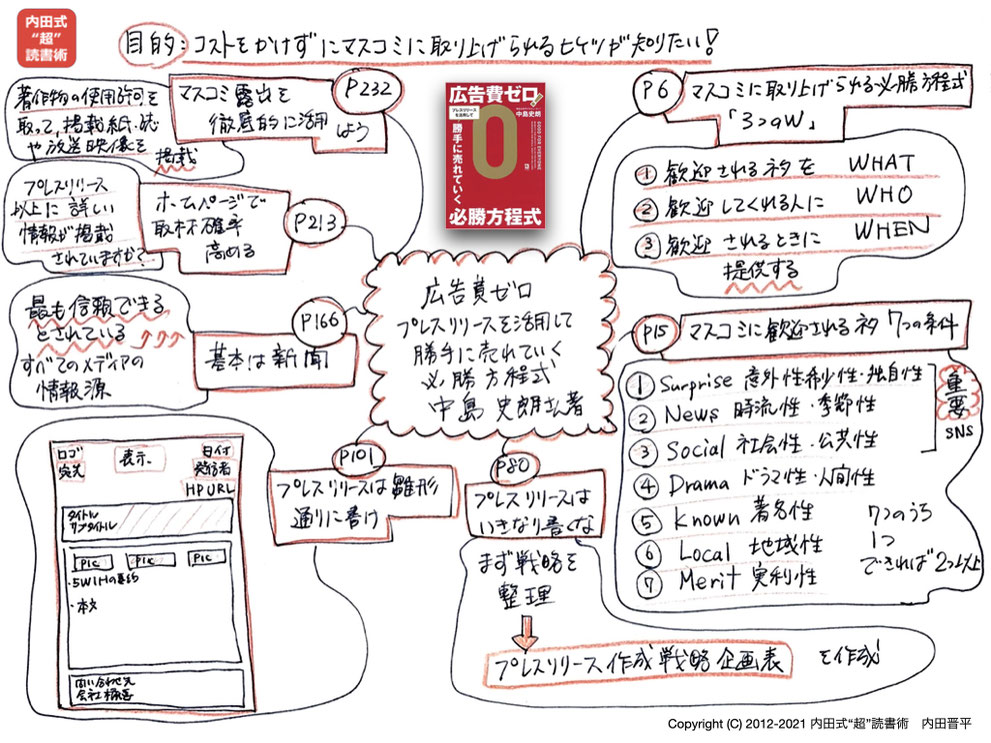 内田式
“超”
読書術
目的:コストをかけずにマスコミに取り上げられるヒケツが知りたい!
P232
マスコミ露出を
徹底的に活用
しよう
著作物の使用許可を
取って、掲載紙・誌
や放送映像を
掲載
P213
ホームページで
取材確率
高める
プレスリリース
以上に詳しい
情報が掲載
されていますか?
P166
基本は新聞
最も信頼できる
とされている
すべてのメディアの
情報源
P101
プレスリリースは雛形
通りに書け
ロゴ
宛先
表示
日付
発信者
HP URL
タイトル
サブタイトル
PIC
PIC
PIC
・5W1Hの要約
・本文
問い合わせ先
会社概要
広告費ゼロ
プレスリリースを活用して
勝手に売れていく
必勝方程式
中島史朗
0
広告費ゼロ
プレスリリースを活用して
勝手に売れていく
必勝方程式
中島史朗さん著
P6
マスコミに取り上げられる必勝方程式
「3つのW」
① 歓迎されるネタを WHAT
② 歓迎してくれる人に WHO
③ 歓迎されるときに WHEN
提供する
P15
マスコミに歓迎されるネタ 7つの条件
① Surprise 意外性・希少性・独自性
② News 時流性・季節性
③ Social 社会性・公共性
④ Drama ドラマ性・人間性
⑤ Known 著名性
⑥ Local 地域性
⑦ Merit 実利性
重要
SNS
7つのうち
1つ
できれば2つ以上
P80
プレスリリースは
いきなり書くな
まず戦略を
整理
プレスリリース作成戦略企画表 を作成
Copyright (C) 2012-2021 内田式“超”読書術 内田晋平